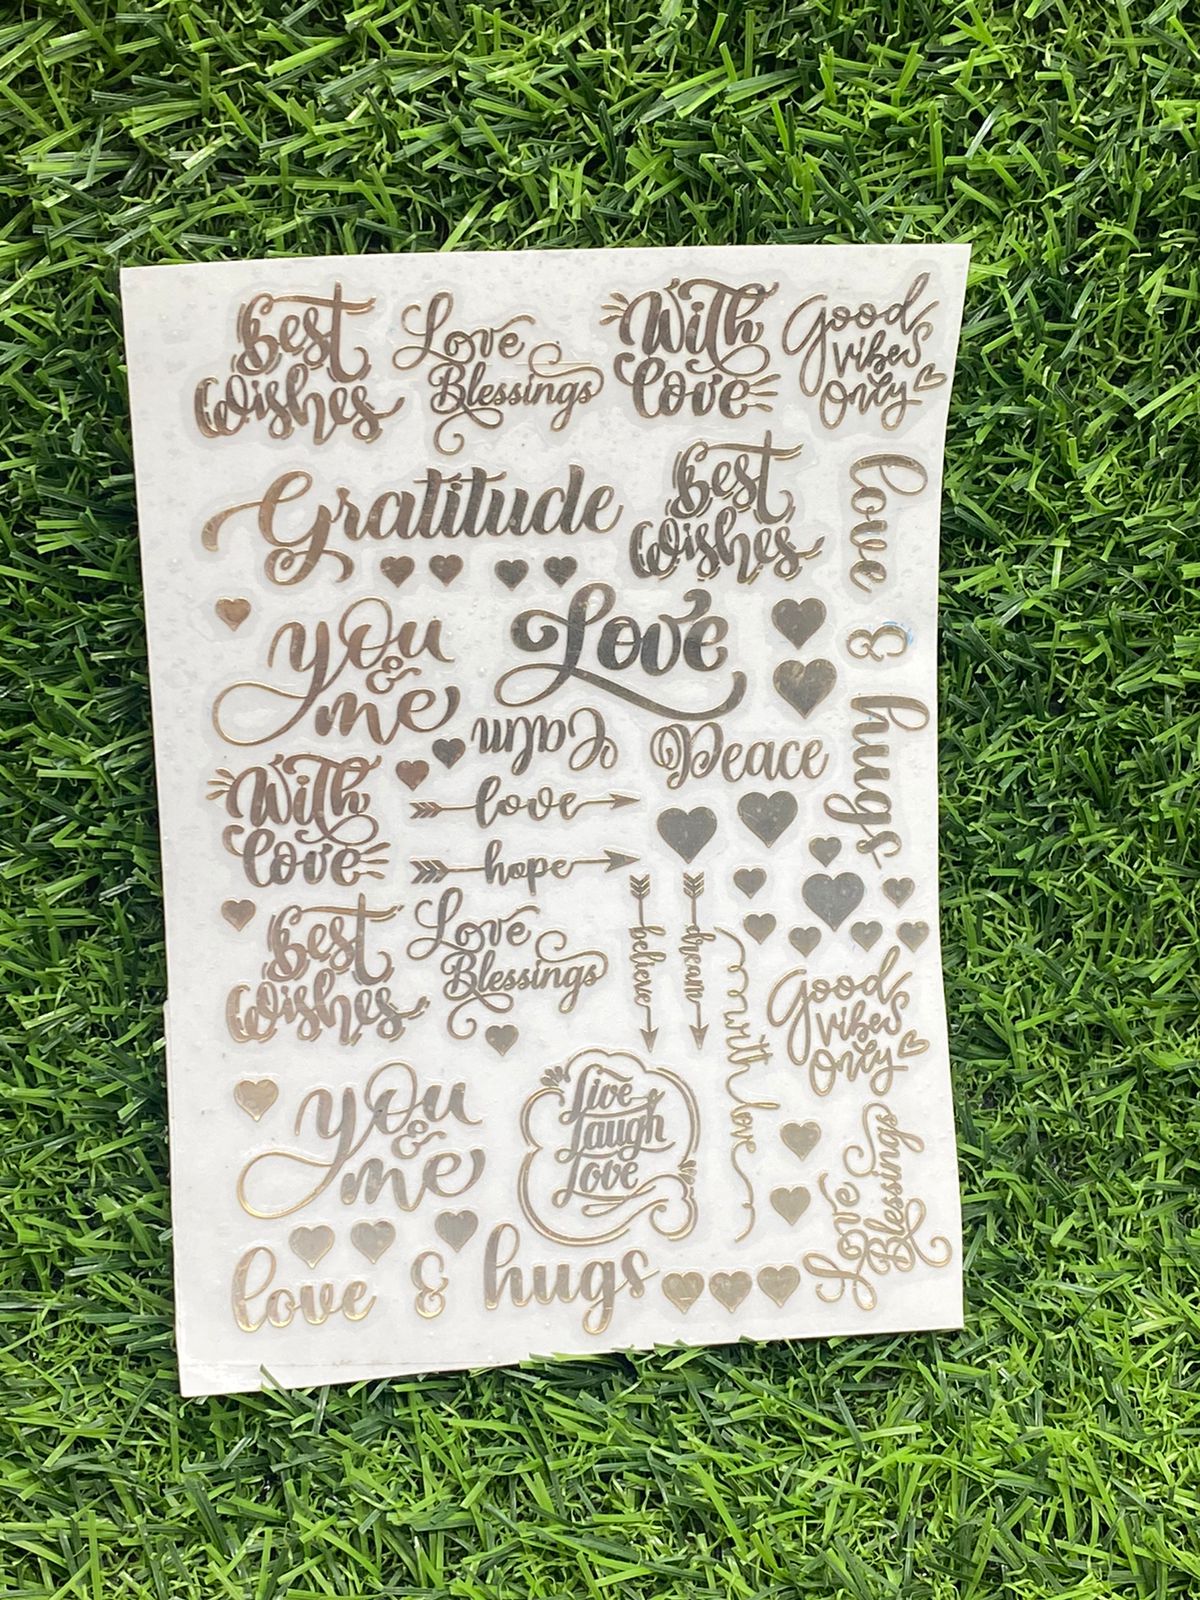 Best
Wishes
Love
Blessings
With
Love
Good
vibes
Only
Gratitude
Best
Wishes
love & hugs
you
&
me
Love
Calm
Peace
With
Love
love
hope
believe
dream
with love
Best
Wishes
Love
Blessings
Good
vibes
Only
you
&
me
Live
Laugh
Love
Love
Blessings
love & hugs